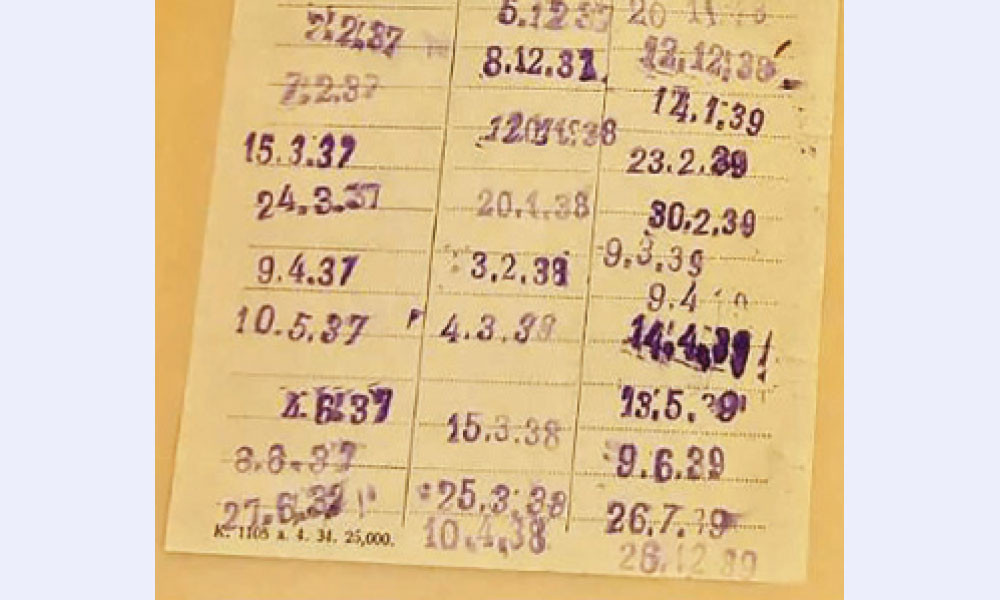 7.2.37
7.2.37
15.3.37
24.3.37
9.4.37
10.5.37
4.6.37
8.6.37
27.6.32
K. 1105 a. 4. 34. 25,000.
5.12.37
8.12.37
20.1.38
3.2.38
4.3.38
15.3.38
25.3.38
10.4.38
12.12.38
14.1.39
23.2.39
30.2.39
9.3.39
9.4
14.4.39
13.5.39
9.6.39
26.7.39
26.12 39